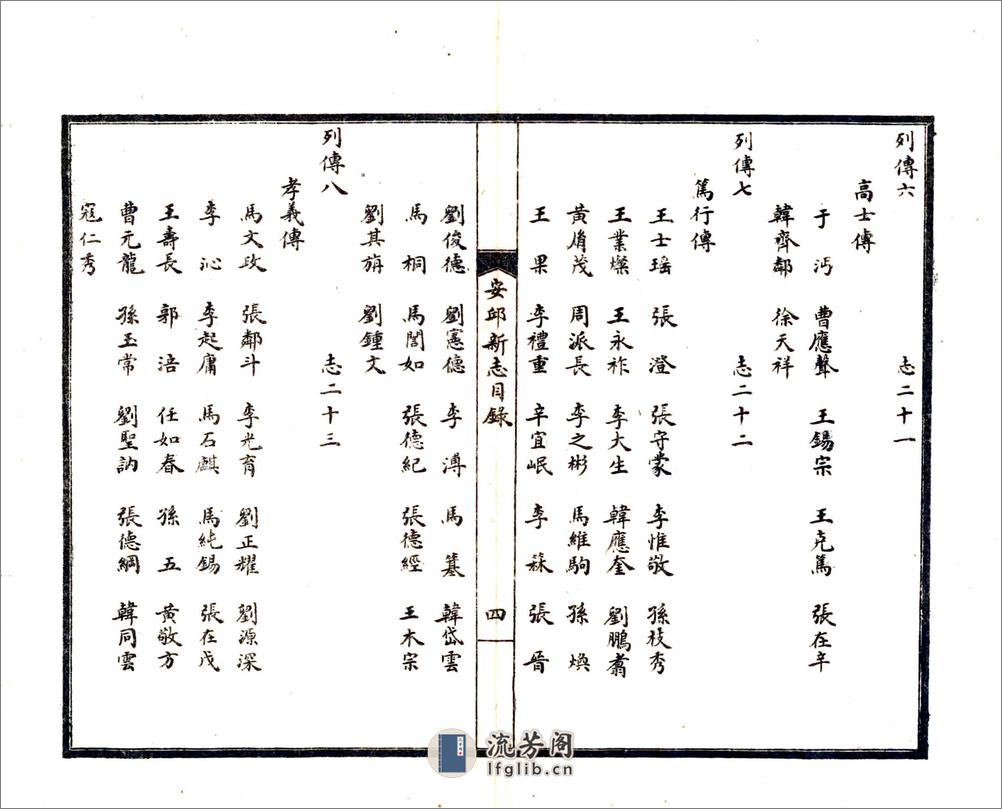 列傳六 志二十一
高士傳
于 沔 曹應聲 王錫宗 王克篤 張在辛
韓齊鄰 徐天祥
列傳七 志二十二
篤行傳
王士瑶 張 澄 張守蒙 李惟敬 孫枝秀
王業燦 王永祚 李大生 韓應奎 劉鵬翥
黃㣧茂 周派長 李之彬 馬維駒 孫 煥
王 果 李禮重 辛宜岷 李 張 晉
安邱新志目錄 四
劉俊德 劉憲德 李 溥 馬 韓岱雲
馬 桐 馬誾如 張德紀 張德經 王木宗
劉其旃 劉鍾文
列傳八 志二十三
孝義傳
馬文政 張鄰斗 李光育 劉正耀 劉源深
李 沁 李起庸 馬石麒 馬純錫 張在戊
王壽長 郭 浯 任如春 孫 五 黃敬方
曹元龍 孫玉常 劉聖訥 張德綱 韓同雲
寇仁秀
流芳阁
lfglib.cn